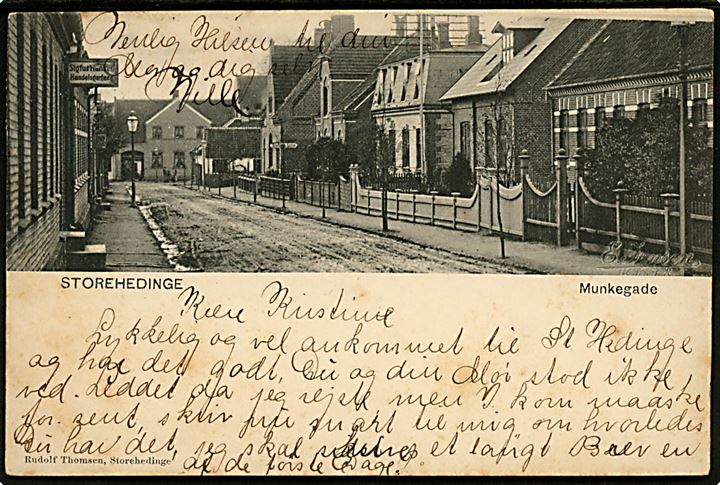 Venlig Hilsen til din
Mor og dig selv
Ville.
Sigfus
Handelsgartner
STOREHEDINGE
Munkegade
Kære Kristine
Lykkelig og vel ankommet til St Hedinge
og har det godt, Du og din Mor stod ikke
ved Leddet da jeg rejste men I kom maaske
for sent, skriv snart til mig om hvorledes
Du har det, jeg skal et langt Brev en
af de første Dage.
Rudolf Thomsen, Storehedinge